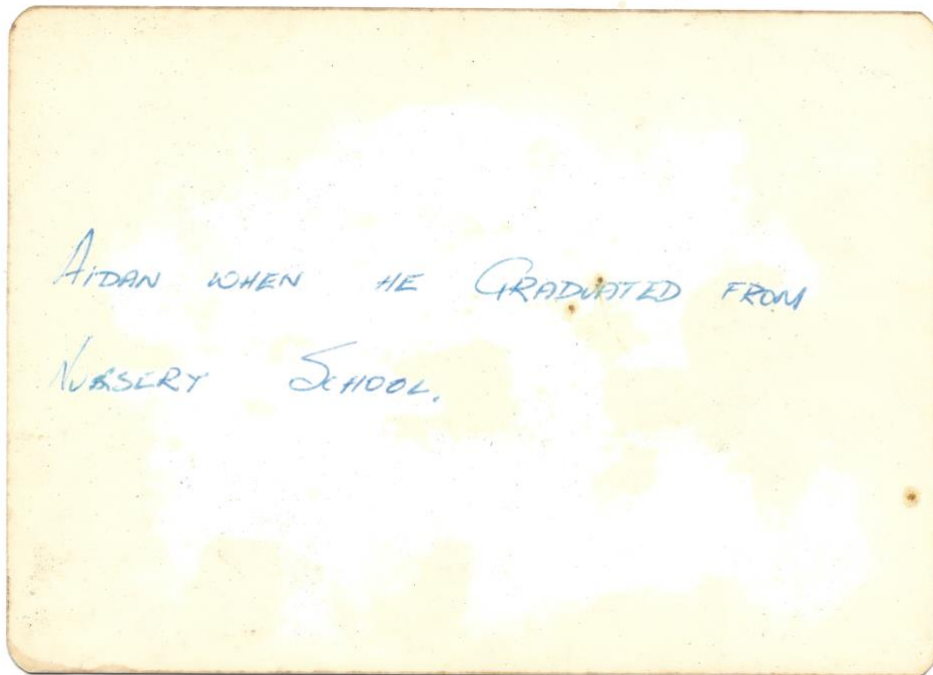 AIDAN WHEN HE GRADUATED FROM
NURSERY SCHOOL.